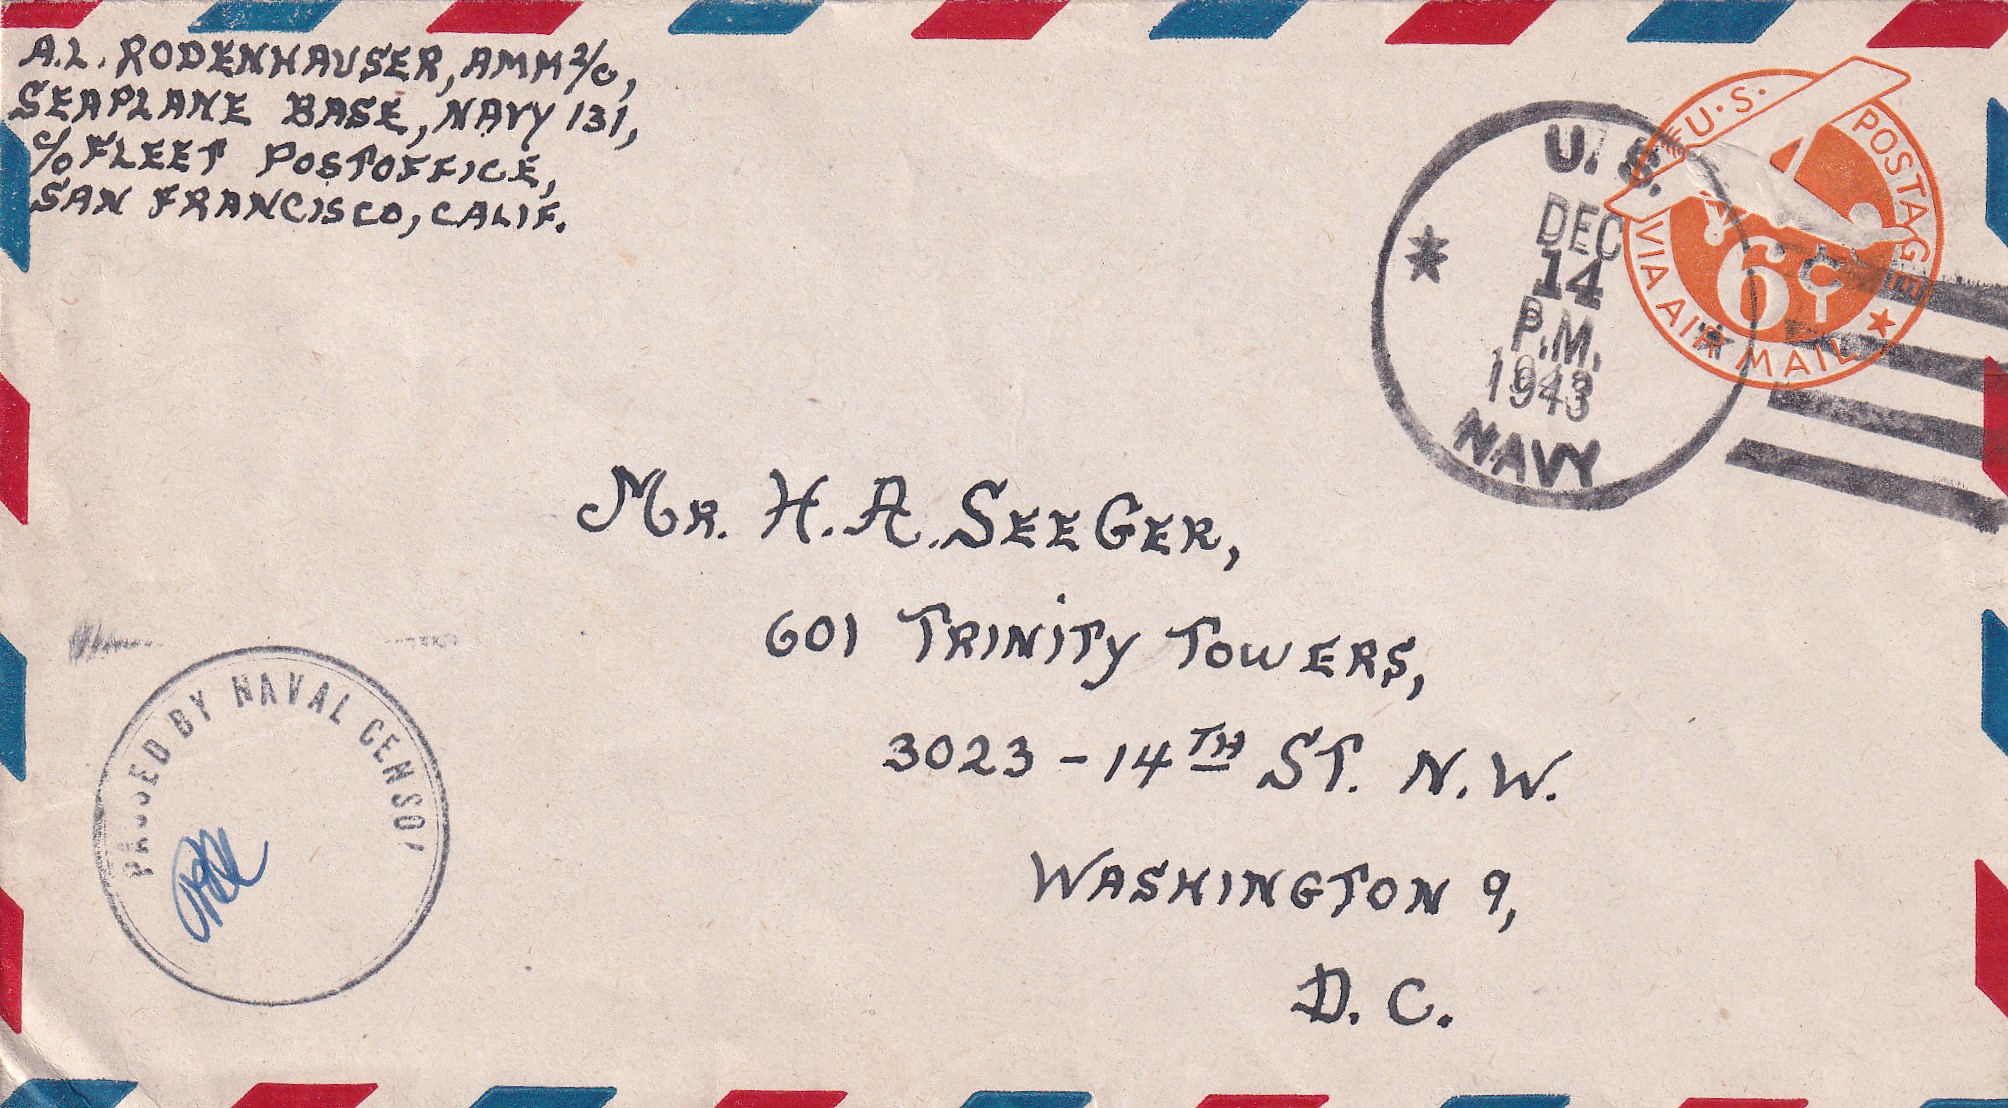 A.L. RODENHAUSER, AMM2/C,
SEAPLANE BASE, NAVY 131,
C/O FLEET POSTOFFICE,
SAN FRANCISCO, CALIF.
U.S.
DEC
14
P.M.
1943
NAVY
U.S. POSTAGE
6¢
VIA AIR MAIL
MR. H.A. SEEGER,
601 TRINITY TOWERS,
3023-14TH ST. N.W.
WASHINGTON 9,
D.C.
PASSED BY NAVAL CENSOR